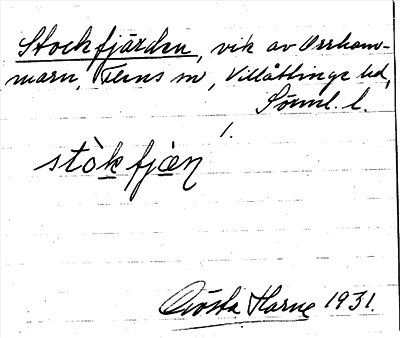 Stockfjärden, vik av Orrham-
marn, Flens sn, Villåttinge hd,
Sörml. l.
1.
stòkfjæn
Gösta Harne 1931.